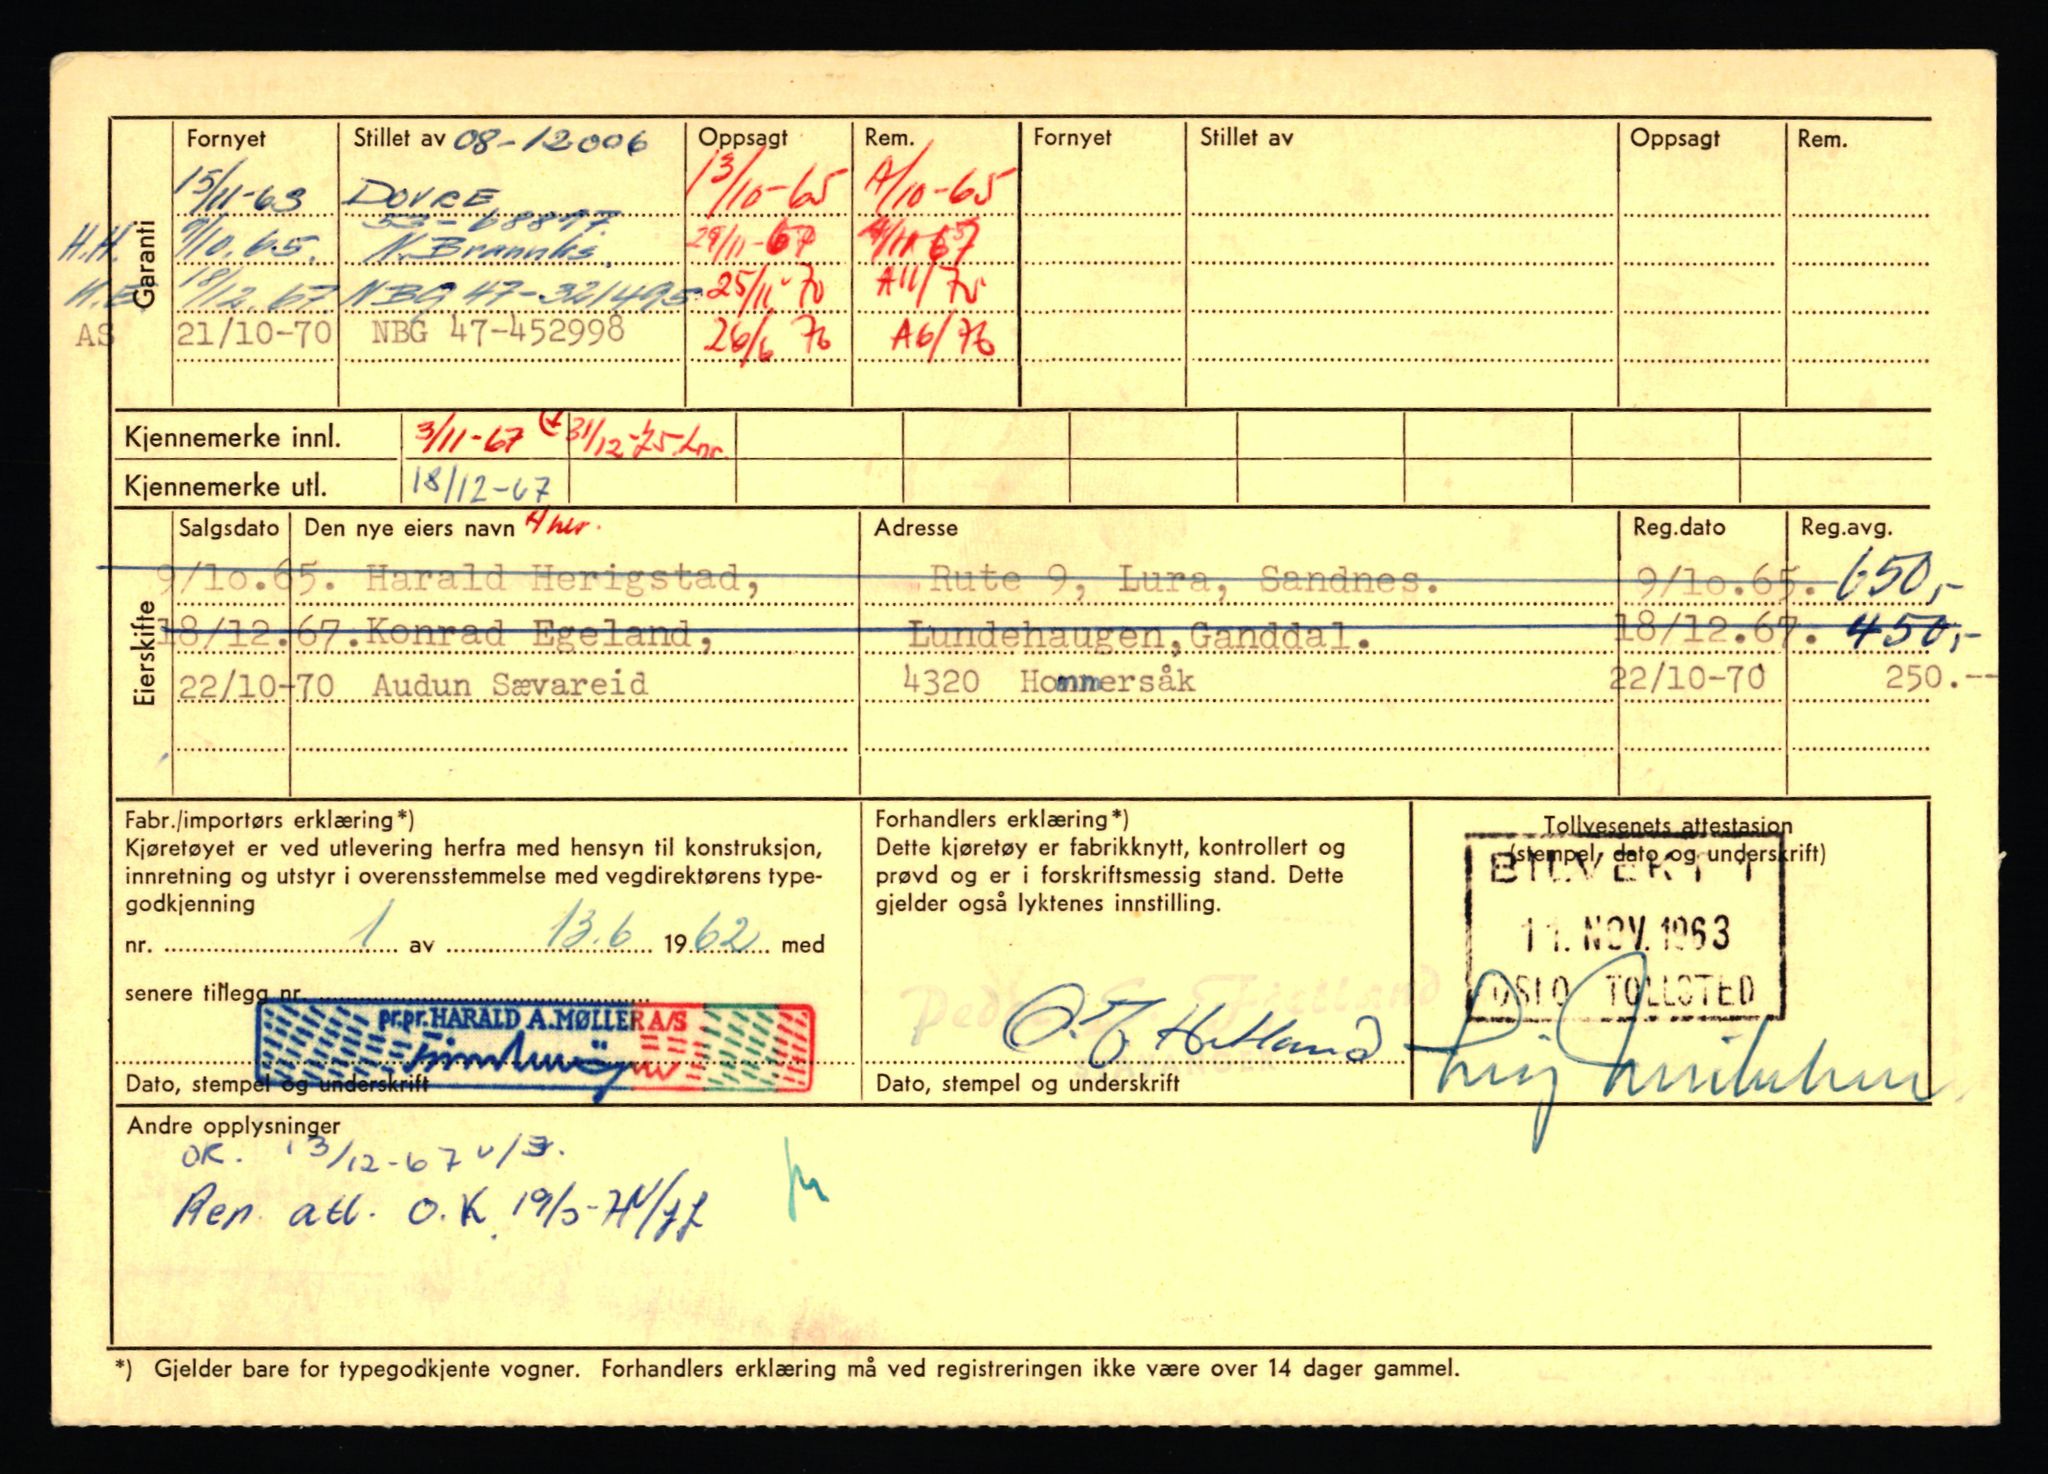 Fornyet Stillet av 08-12006 Oppsagt Rem. Fornyet Stillet av Oppsagt Rem.
Garanti
15/11-63 DOVRE 13/10-65 A/10-65
53-68897
H.H. 9/10.65. N.Brannks. 29/11-67 11-67
H.E. 18/12.67 NBG 47-321495 25/11 70 A11/70
AS 21/10-70 NBG 47-452998 26/6 76 A6/76
Kjennemerke innl. 3/11-67 31/12-75 Lnr.
Kjennemerke utl. 18/12-67
Eierskifte
Salgsdato Den nye eiers navn Adresse Reg.dato Reg.avg.
9/1o.65. Harald Herigstad, Rute 9, Lura, Sandnes. 9/1o.65. 650,-
18/12.67. Konrad Egeland, Lundehaugen,Ganddal. 18/12.67. 450,-
22/10-70 Audun Sævareid 4320 Hommersåk 22/10-70 250.--
Fabr./importørs erklæring*)
Kjøretøyet er ved utlevering herfra med hensyn til konstruksjon,
innretning og utstyr i overensstemmelse med vegdirektørens type-
godkjenning
nr. 1 av 13.6 1962 med
senere tillegg nr.
pr.pr. HARALD A. MØLLER A/S
Dato, stempel og underskrift
Forhandlers erklæring*)
Dette kjøretøy er fabrikknytt, kontrollert og
prøvd og er i forskriftsmessig stand. Dette
gjelder også lyktenes innstilling.
STAVANGER
Dato, stempel og underskrift
Tollvesenets attestasjon
(stempel, dato og underskrift)
11. NOV. 1963
OSLO TOLLSTED
Andre opplysninger
OK. 13/12-67
Rep. atl. O.K.
*) Gjelder bare for typegodkjente vogner. Forhandlers erklæring må ved registreringen ikke være over 14 dager gammel.